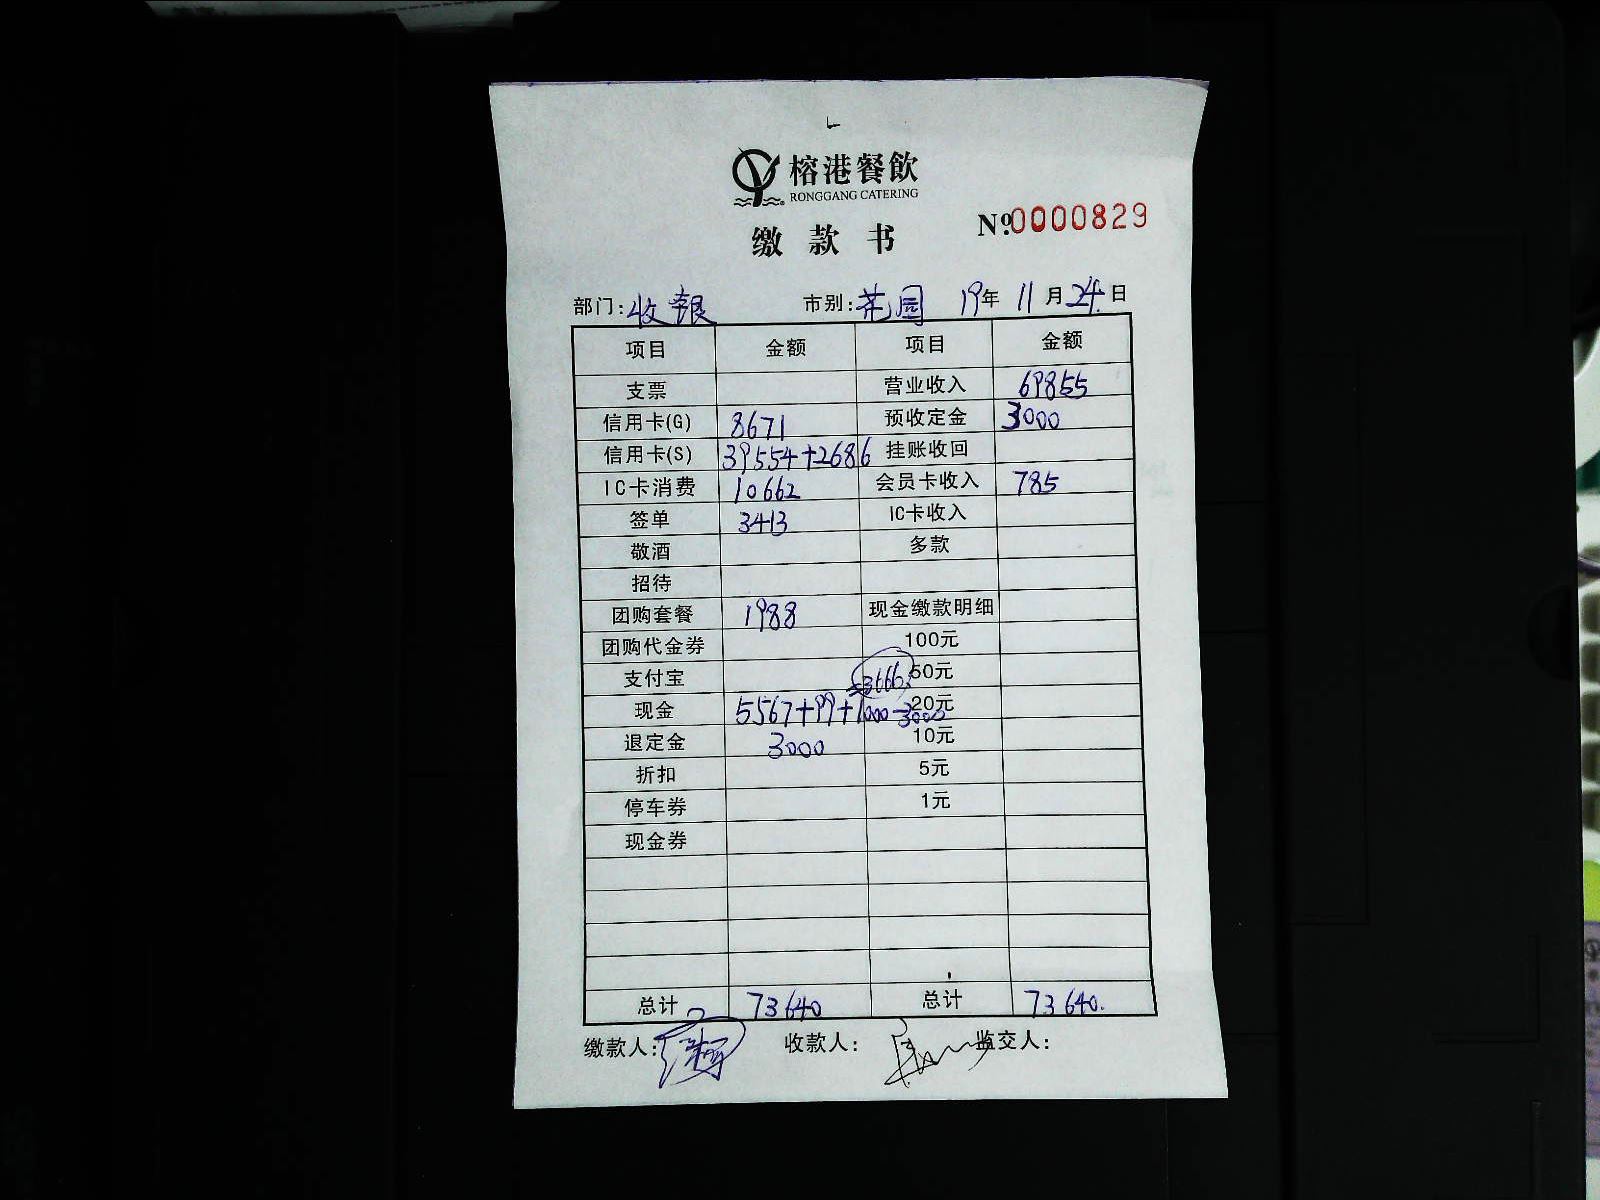 榕港餐飲
RONGGANG CATERING
缴款书 №0000829
部门:收银 市别:花园 19年 11月24日
项目 金额 项目 金额
支票 营业收入 69855
信用卡(G) 8671 预收定金 3000
信用卡(S) 39554+2686 挂账收回
IC卡消费 10662 会员卡收入 785
签单 3413 IC卡收入
敬酒 多款
招待
团购套餐 1988 现金缴款明细
团购代金券 100元
支付宝 3666 50元
现金 5567+99+1000-3000 20元
退定金 3000 10元
折扣 5元
停车券 1元
现金券
总计 73640 总计 73640.
缴款人: 收款人: 监交人: